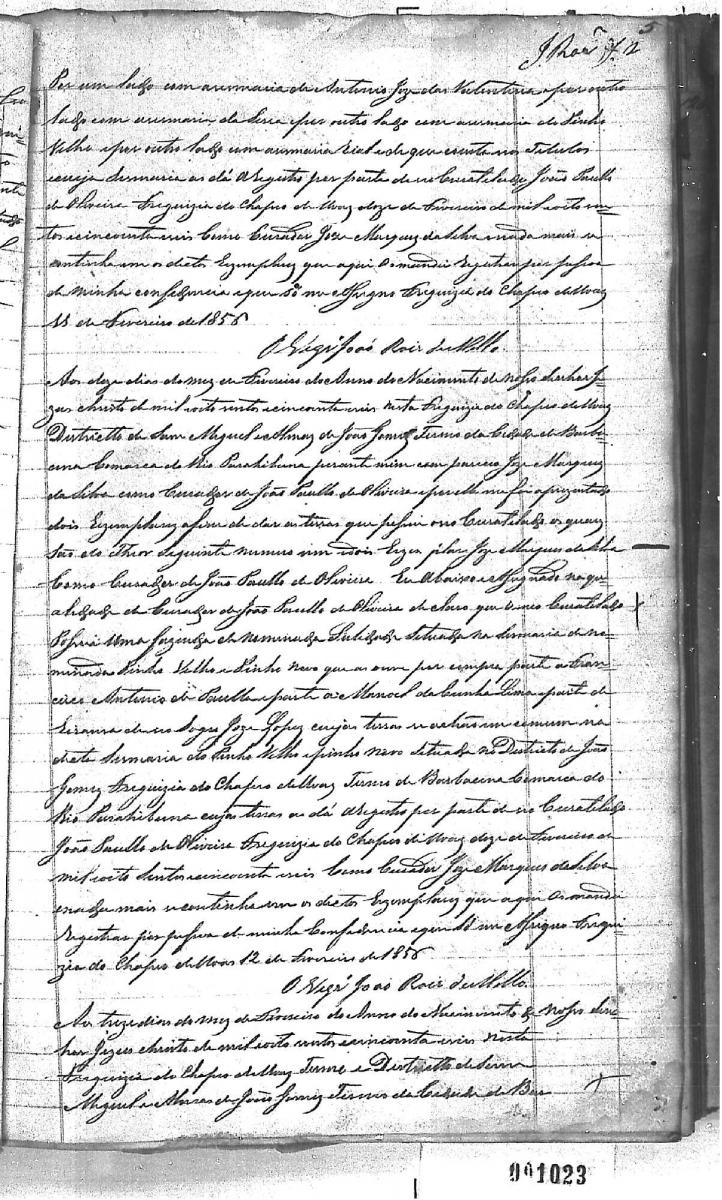 5
Por um lado com a cismaria de Antonio Joze das e por outro
lado com a cismaria da Serra e por outro lado com a cismaria do Pinho
Velho e por outro lado com a cismaria e de que consta nos Titulos
cuja Sesmaria as dá a Registo por parte de seo Curatelado João Paullo
de Oliveira Freguizia do Chapeo de Uvas doze de Fevereiro de mil oito cen-
tos e cincoenta e seis Como Curador Joze Marques da Silva e nada mais se
continha em os dictos Exemplares que aqui os mandei Registrar por pessoa
de minha confidencia e que só me Assigno Freguizia do Chapeo de Uvas
de Fevereiro de 1856
O Vigr.º João Roiz de Mello.
Aos doze dias do mez de Fevereiro do Anno do Nacimento de Nosso Senhor Je-
zus Christo de mil oito centos e cincoenta e seis nesta Freguizia do Chapeo de Uvas
Districtto de Sam Miguel e Almas de João Gomes Termo da Cidade de Barba-
cena Comarca do Rio Parahibuna perante mim com pareceo Joze Marques
da Silva como Curador de João Paullo de Oliveira e por elle me foi aprezentado
dois Exemplares afim de dar as terras que pessui o seo Curatelado os quaes
são do Theor Seguinte numero um e dois Joze Marques da Silva
Como Curador de João Paullo de Oliveira. Eu Abaixo e Assignado na qu-
alidade de Curador de João Paullo de Oliveira declaro que o meo Curatelado
Possui uma fazenda denominada Situada na Sismaria de no-
minada Pinho Velho e Pinho novo que as ouve por compra parte a Fran-
cisco Antonio de Paulla e parte a Manoel da Cunha Lima e parte de
Eransa de seo Sogro Joze Lopez cujas terras se achão em comum na
dicta Sesmaria do Pinho Velho e pinho novo Situada no Districto de João
Gomez Freguizia do Chapeo de Uvas Termo de Barbacena Comarca do
Rio Parahibuna cujas terras as dá a Registo por parte de seo Curatelado
João Paullo de Oliveira Freguizia do Chapeo de Uvas doze de Fevereiro de
mil oito Sentos e cincoenta e seis Como Curador Joze Marques da Silva
e nada mais se continha em os dictos Exemplares que aqui os mandei
Registrar por pessoa de minha Confidencia e que só me Assigno Fregui-
zia do Chapeo de Uvas 12 de Fevereiro de 1856
O Vigr.º João Roiz de Mello.
Aos treze dias do mez de Fevereiro do Anno do Nacimento de Nosso Sen-
hor Jezus Christo de mil oito centos e cincoenta e seis nesta
Freguizia do Chapeo de Uvas Termo e Districtto de
Miguel e Almas de João Gomez Termo da Cidade de Bar
001023